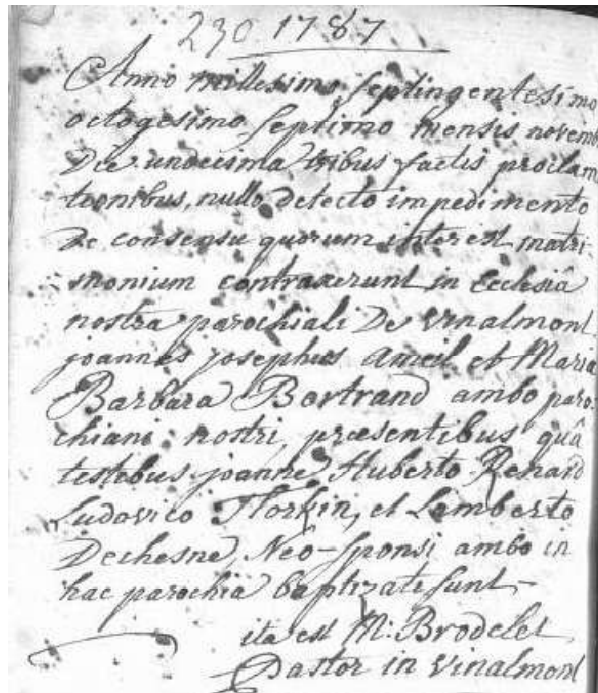 230 1787
Anno millesimo septingentesimo
octogesimo septimo mensis novemb
Die undecima tribus factis proclam
tionibus, nullo detecto impedimento
De consensu quorum interest matri-
monium contraxerunt in Ecclesiâ
nostra parochiali De vinalmont
joannes josephus Ameil et Maria
Barbara Bertrand ambo paro-
chiani nostri, præsentibus quâ
testibus joanne Huberto Renard
Ludovico Florkin, et Lamberto
Dechesne, Neo-sponsi ambo in
hac parochia baptizati sunt -
ita est M. Brodelet
Pastor in vinalmont